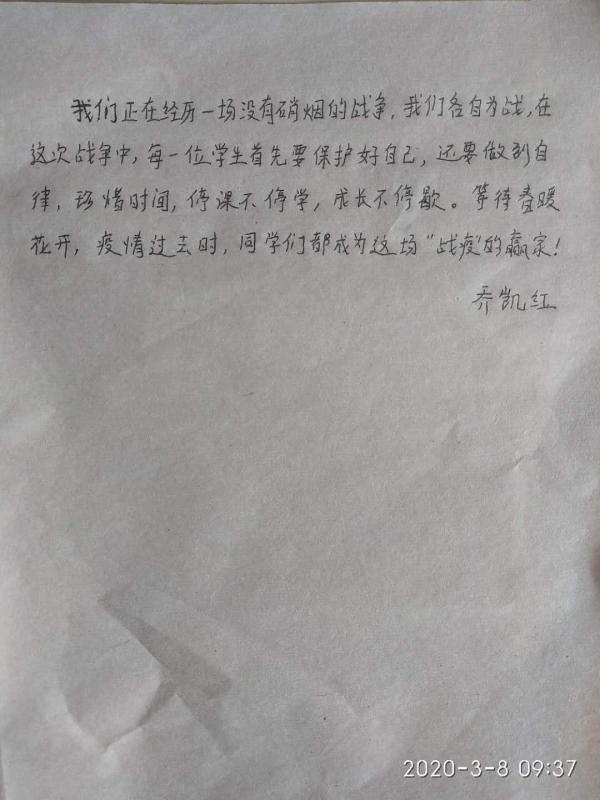 我们正在经历一场没有硝烟的战争，我们各自为战，在
这次战争中，每一位学生首先要保护好自己，还要做到自
律，珍惜时间，停课不停学，成长不停歇。等待春暖
花开，疫情过去时，同学们都成为这场“战疫”的赢家！
乔凯红
2020-3-8 09:37